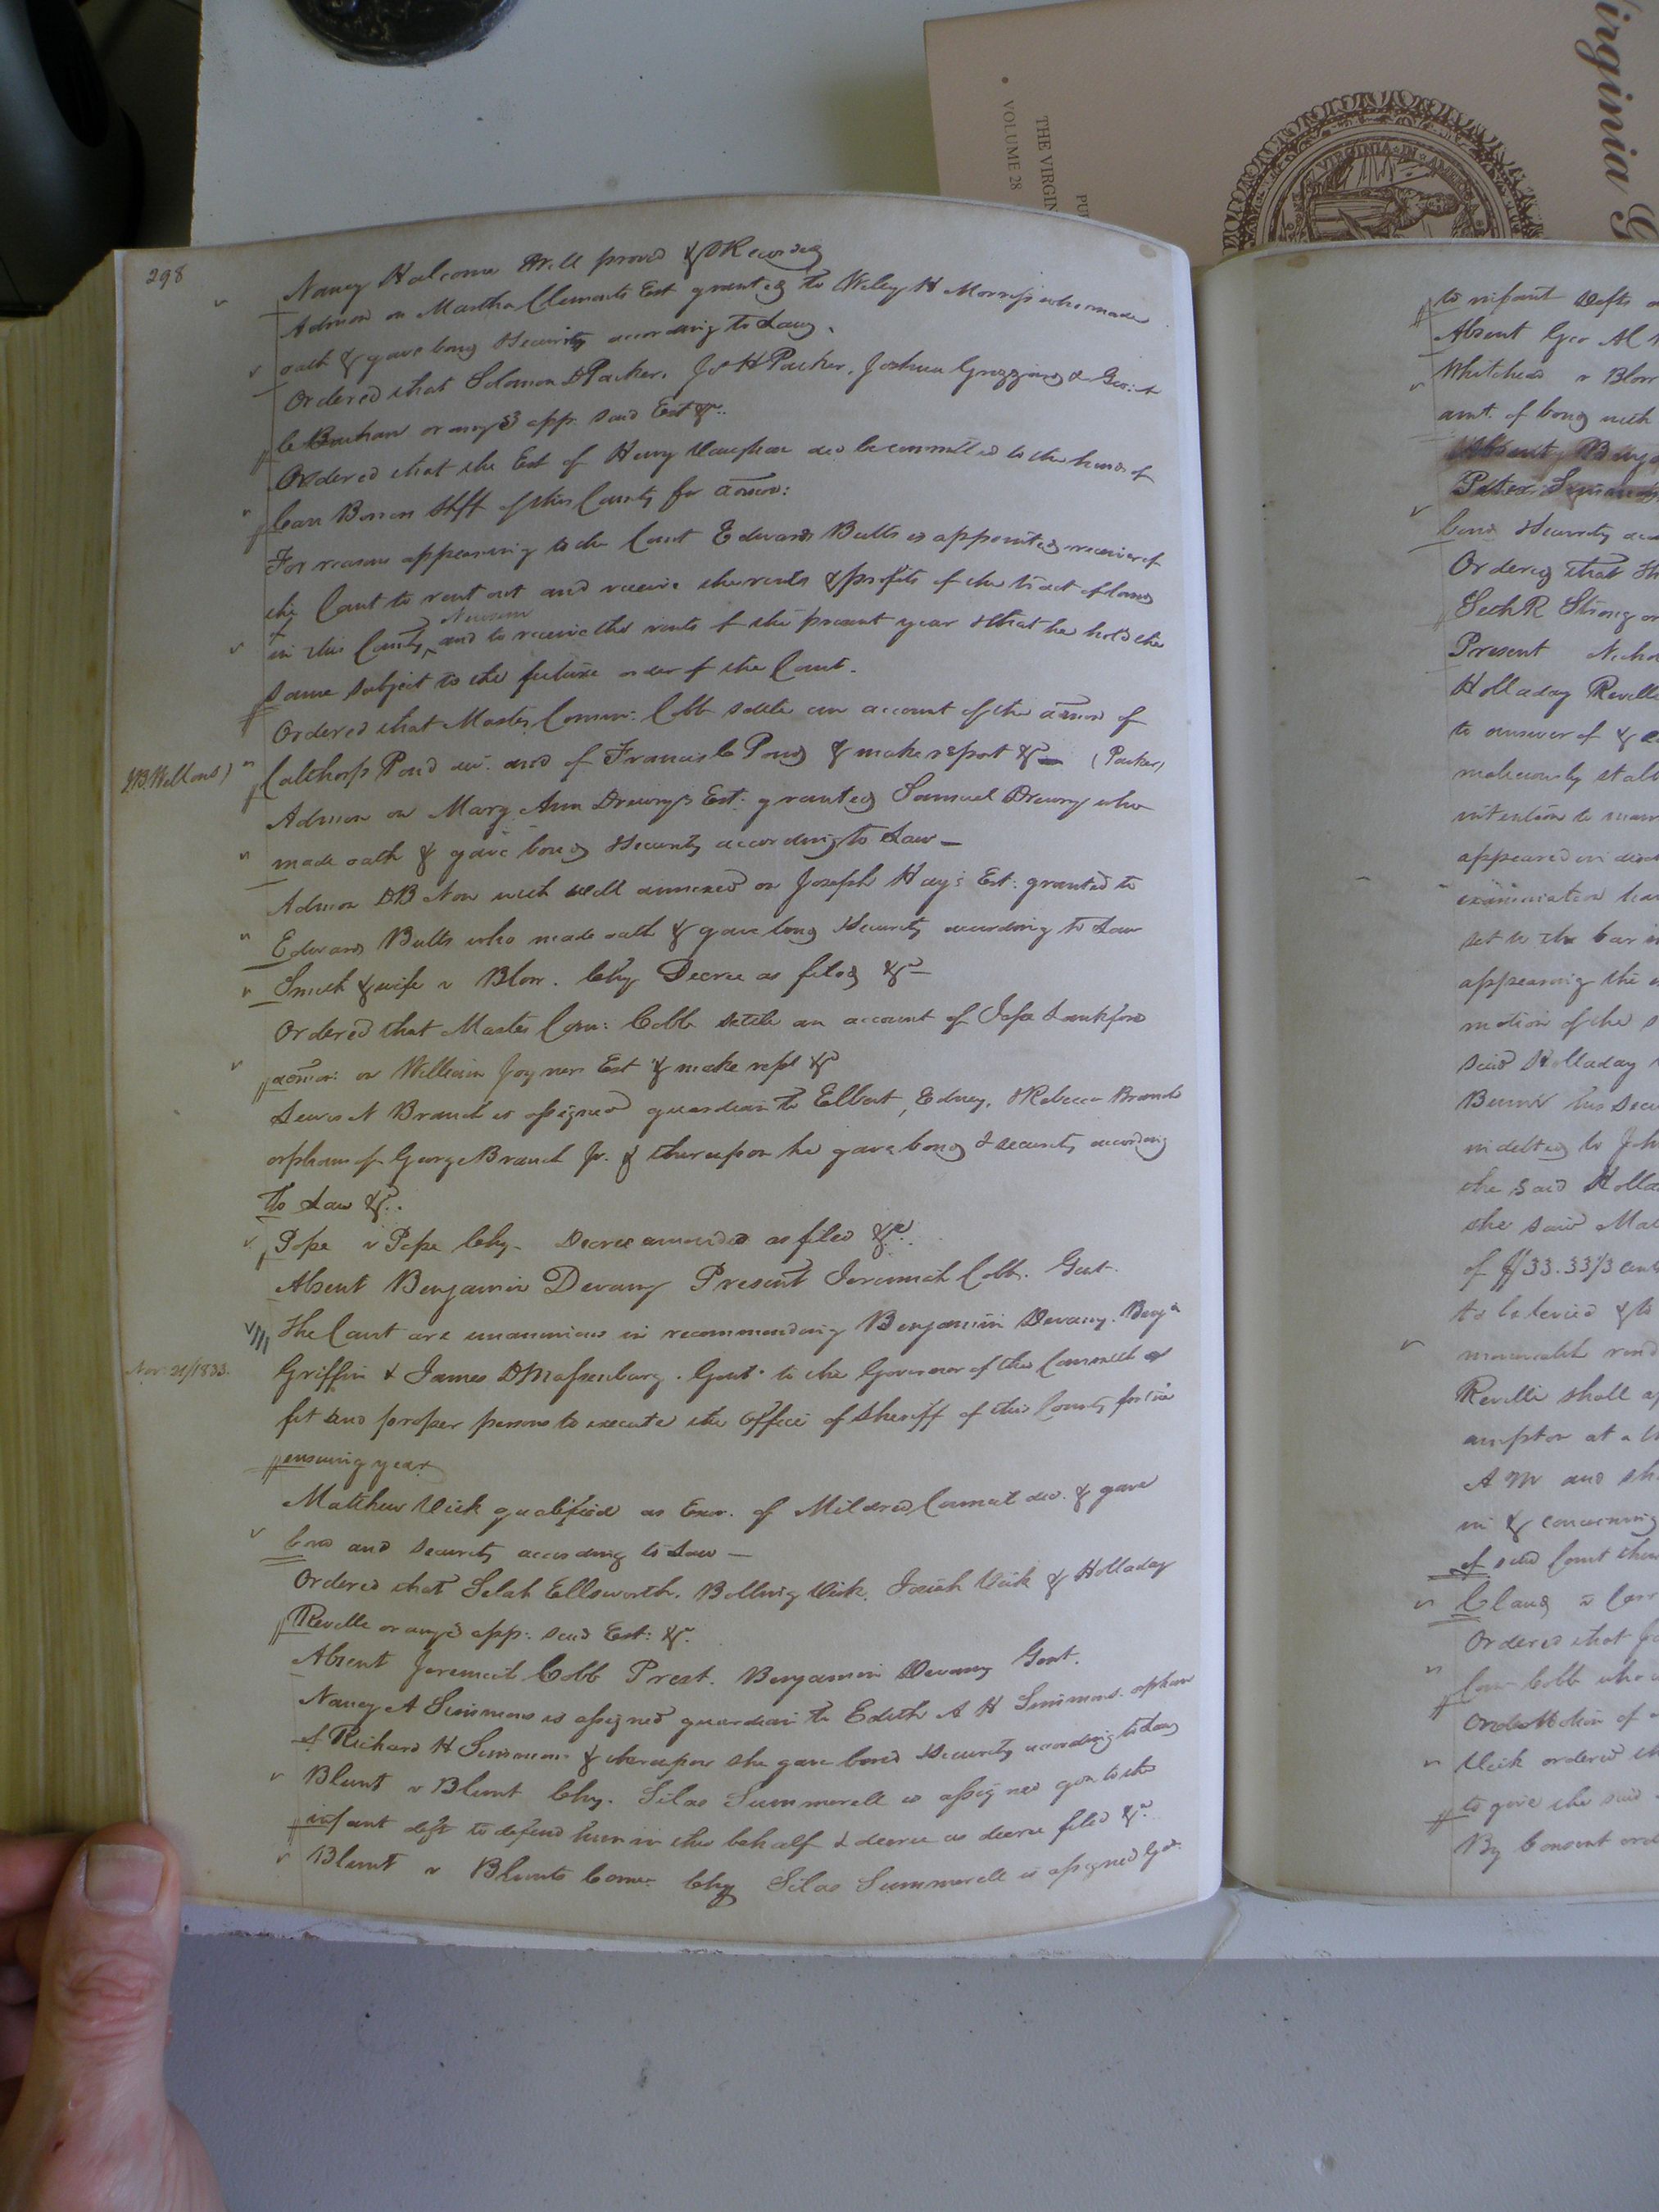 Virginia
THE VIRGIN
VOLUME 28
PU
VIRGINIA IN AMER
298
Nancy Halcome Will proved & ORecorded
Admon on Martha Clements Est granted to Wiley H Morriss who made
oath & gave bond & security according to Law.
Ordered that Solomon D Parker, Js H Parker, Joshua Griggard & Geo:
C Barham or any 3 app. said Est &c.
Ordered that the Est of Henry Vaughan dec be committed to the hands of
Carr Bowen Shff of this County for admon:
For reasons appearing to the Court Edward Butts is appointed receiver of
the Court to rent out and receive the rents & profits of the tract of land
Newsom
in this County and to receive the rents of the present year & that he hold the
same subject to the future order of the Court.
Ordered that Master Commr: Cobb settle an account of the admon of
JB Wellons) Calthorp Pond dec. and of Francis C Pond & make report &c (Parker)
Admon on Mary Ann Drewry's Est: granted Samuel Drewry who
made oath & gave bond & security according to Law
Admon DB Non with will annexed on Joseph Hay's Est: granted to
Edward Butts who made oath & gave bond & security according to Law
Smith & wife v Blow. Chy Decree as filed &c
Ordered that Master Com: Cobb settle an account of Jesse Lankford
admon: on William Joyner Est & make rept &c
Lewis N Branch is assigned guardian to Elbert, Edney, & Rebecca Branch
orphans of George Branch Jr. & thereupon he gave bond & security according
to Law &c.
Pope v Pope Chy. Decree amended as filed &c.
Absent Benjamin Devany Present Jeremiah Cobb. Gent.
The Court are unanimous in recommending Benjamin Devany. Benja
Nov: 21/1833. Griffin & James D Massenburg. Gent. to the Governor of this Commwlth as
fit and proper persons to execute the Office of Sheriff of this County for the
ensuing year
Matthew Vick qualified as Exor. of Mildred Council dec. & gave
bond and security according to Law
Ordered that Selah Ellsworth, Bolling Vick, Josiah Vick & Holladay
Revelle or any 3 app: said Est: &c.
Absent Jeremiah Cobb Prest. Benjamin Devany Gent.
Nancy A Simmons is assigned guardian to Edith A H Simmons. orphan
of Richard H Simmons & thereupon she gave bond & security according to Law
Blunt v Blunt Chy. Silas Summerell is assigned gdn to the
infant deft to defend him in this behalf & decree as decree filed &c.
Blunt v Blunts Comr Chy Silas Summerell is assigned gd.
to infant Defts
Absent Geo Al
Whitehead v Blow
amt. of bond with
Absent Benja
bond & security
Ordered that
Seth R Strong or
Present Nicho
Holladay Revelle
to answer of &
maliciously stab
intention to maim
appeared in
examination
set to the bar
appearing the
motion of the
said Holladay
his
indebted to Joh
the said Holla
the said
of $33.33 1/3 cents
to be levied & to
rend
Revelle shall
ampton at a
A M and sh
in & concerning
of said Court
Claud v Carr
Ordered that
Cobb who
Order
Vick ordered th
to give the said
By Consent ord